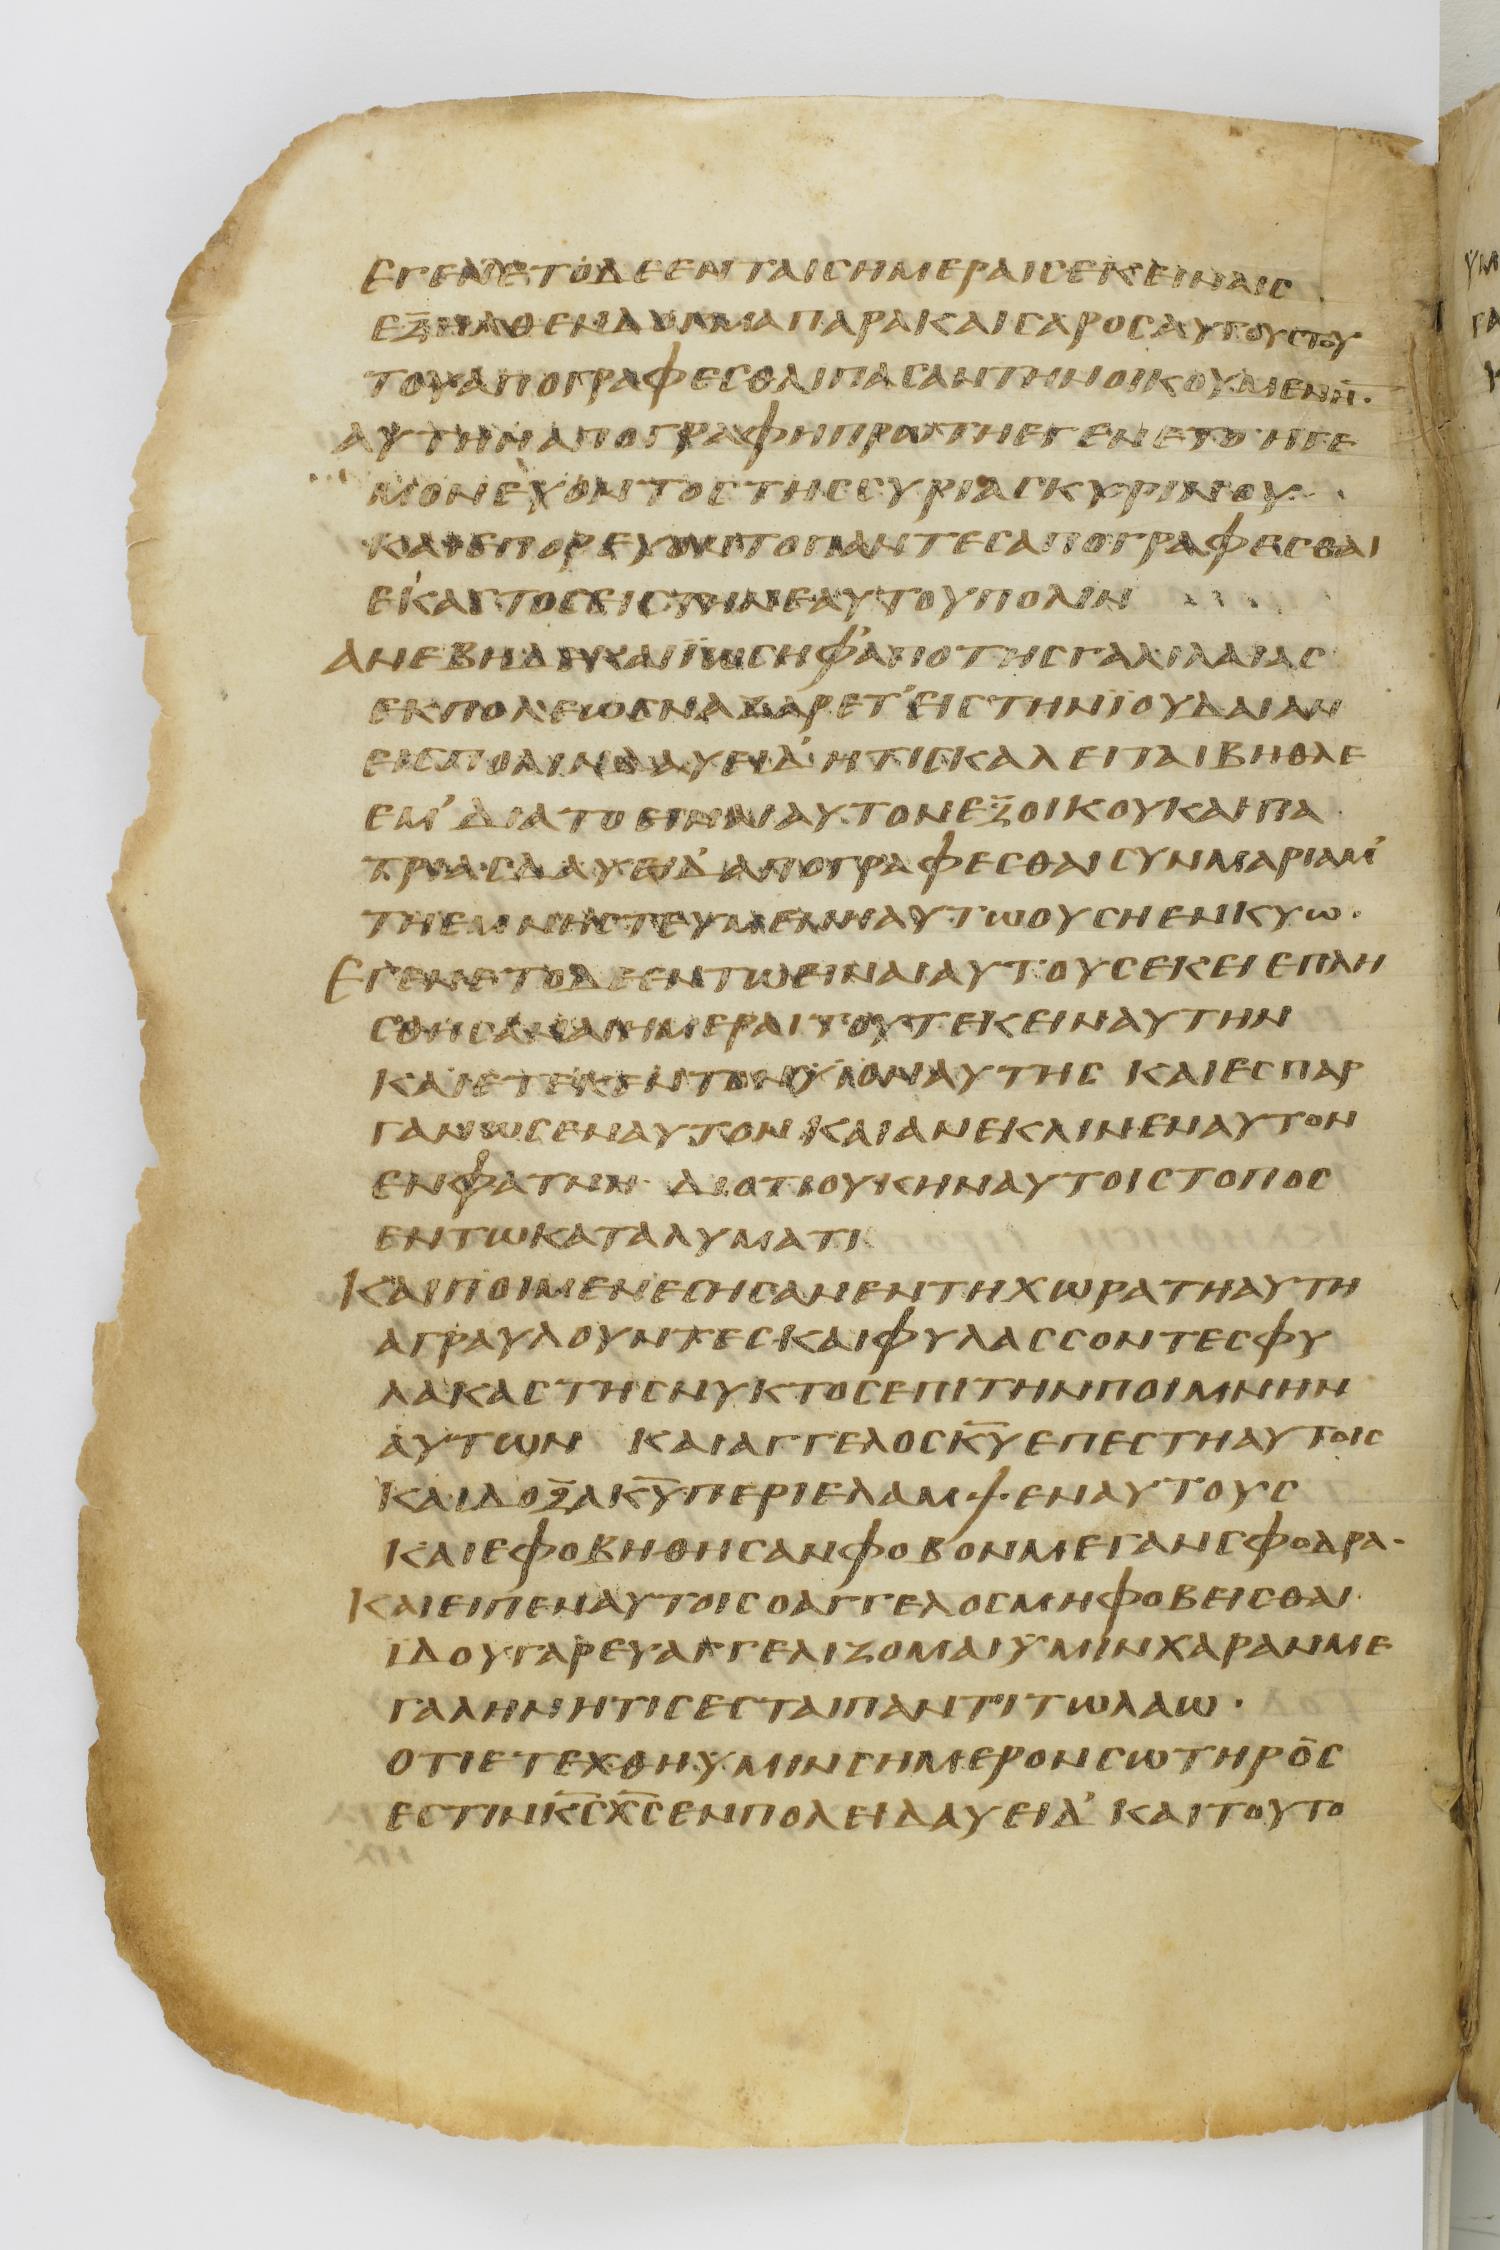 ΕΓΕΝΕΤΟΔΕΕΝΤΑΙCΗΜΕΡΑΙCΕΚΕΙΝΑΙC
ΕΞΗΛΘΕΝΔΟΓΜΑΠΑΡΑΚΑΙCΑΡΟCΑΥΓΟΥCΤΟΥ
ΤΟΥΑΠΟΓΡΑΦΕCΘΑΙΠΑCΑΝΤΗΝΟΙΚΟΥΜΕΝΗ̄·
ΑΥΤΗΗΑΠΟΓΡΑΦΗΠΡΩΤΗΕΓΕΝΕΤΟ·ΗΓΕ
ΜΟΝΕΥΟΝΤΟCΤΗCCΥΡΙΑCΚΥΡΙΝΟΥ·
ΚΑΙΕΠΟΡΕΥΟΝΤΟΠΑΝΤΕCΑΠΟΓΡΑΦΕCΘΑΙ
ΕΚΑCΤΟCΕΙCΤΗΝΕΑΥΤΟΥΠΟΛΙΝ
ΑΝΕΒΗΔΕΚΑΙΪΩCΗΦ᾽ΑΠΟΤΗCΓΑΛΙΛΑΙΑC
ΕΚΠΟΛΕΩCΝΑΖΑΡΕΤ᾽ΕΙCΤΗΝΙΟΥΔΑΙΑΝ
ΕΙCΠΟΛΙΝΔΑΥΕΙΔ᾽ΗΤΙCΚΑΛΕΙΤΑΙΒΗΘΛΕ
ΕΜ᾽ΔΙΑΤΟΕΙΝΑΙΑΥΤΟΝΕΞΟΙΚΟΥΚΑΙΠΑ
ΤΡΙΑCΔΑΥΕΙΔ᾽ΑΠΟΓΡΑΦΕCΘΑΙCΥΝΜΑΡΙΑΜ᾽
ΤΗΕΜΝΗCΤΕΥΜΕΝΗΑΥΤΩΟΥCΗΕΝΚΥΩ·
ΕΓΕΝΕΤΟΔΕΕΝΤΩΕΙΝΑΙΑΥΤΟΥCΕΚΕΙΕΠΛΗ
CΘΗCΑΝΑΙΗΜΕΡΑΙΤΟΥΤΕΚΕΙΝΑΥΤΗΝ
ΚΑΙΕΤΕΚΕΝΤΟΝΥΙΟΝΑΥΤΗC ΚΑΙΕCΠΑΡ
ΓΑΝΩCΕΝΑΥΤΟΝΚΑΙΑΝΕΚΛΙΝΕΝΑΥΤΟΝ
ΕΝΦΑΤΝΗ·ΔΙΟΤΙΟΥΚΗΝΑΥΤΟΙCΤΟΠΟC
ΕΝΤΩΚΑΤΑΛΥΜΑΤΙ
ΚΑΙΠΟΙΜΕΝΕCΗCΑΝΕΝΤΗΧΩΡΑΤΗΑΥΤΗ
ΑΓΡΑΥΛΟΥΝΤΕCΚΑΙΦΥΛΑCCΟΝΤΕCΦΥ
ΛΑΚΑCΤΗCΝΥΚΤΟCΕΠΙΤΗΝΠΟΙΜΝΗΝ
ΑΥΤΩΝ ΚΑΙΑΓΓΕΛΟCΚ̅Υ̅ΕΠΕCΤΗΑΥΤΟΙC
ΚΑΙΔΟΞΑΚ̅Υ̅ΠΕΡΙΕΛΑΜΨΕΝΑΥΤΟΥC
ΚΑΙΕΦΟΒΗΘΗCΑΝΦΟΒΟΝΜΕΓΑΝCΦΟΔΡΑ·
ΚΑΙΕΙΠΕΝΑΥΤΟΙCΟΑΓΓΕΛΟCΜΗΦΟΒΕΙCΘΑΙ
ΙΔΟΥΓΑΡΕΥΑΓΓΕΛΙΖΟΜΑΙΫΜΙΝΧΑΡΑΝΜΕ
ΓΑΛΗΝΗΤΙCΕCΤΑΙΠΑΝΤΙΤΩΛΑΩ·
ΟΤΙΕΤΕΧΘΗΥΜΙΝCΗΜΕΡΟΝCΩΤΗΡΟC
ΕCΤΙΝΚ̅C̅Χ̅C̅ΕΝΠΟΛΕΙΔΑΥΕΙΔ᾽ΚΑΙΤΟΥΤΟ